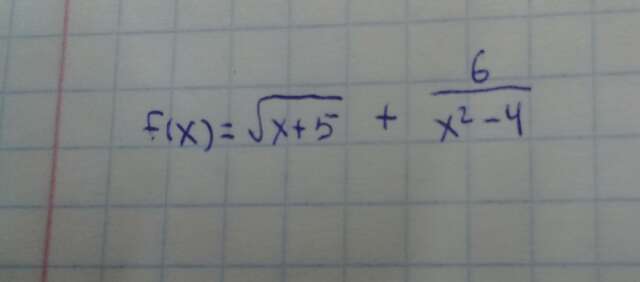 f(x) = √(x+5) + 6/(x² - 4)